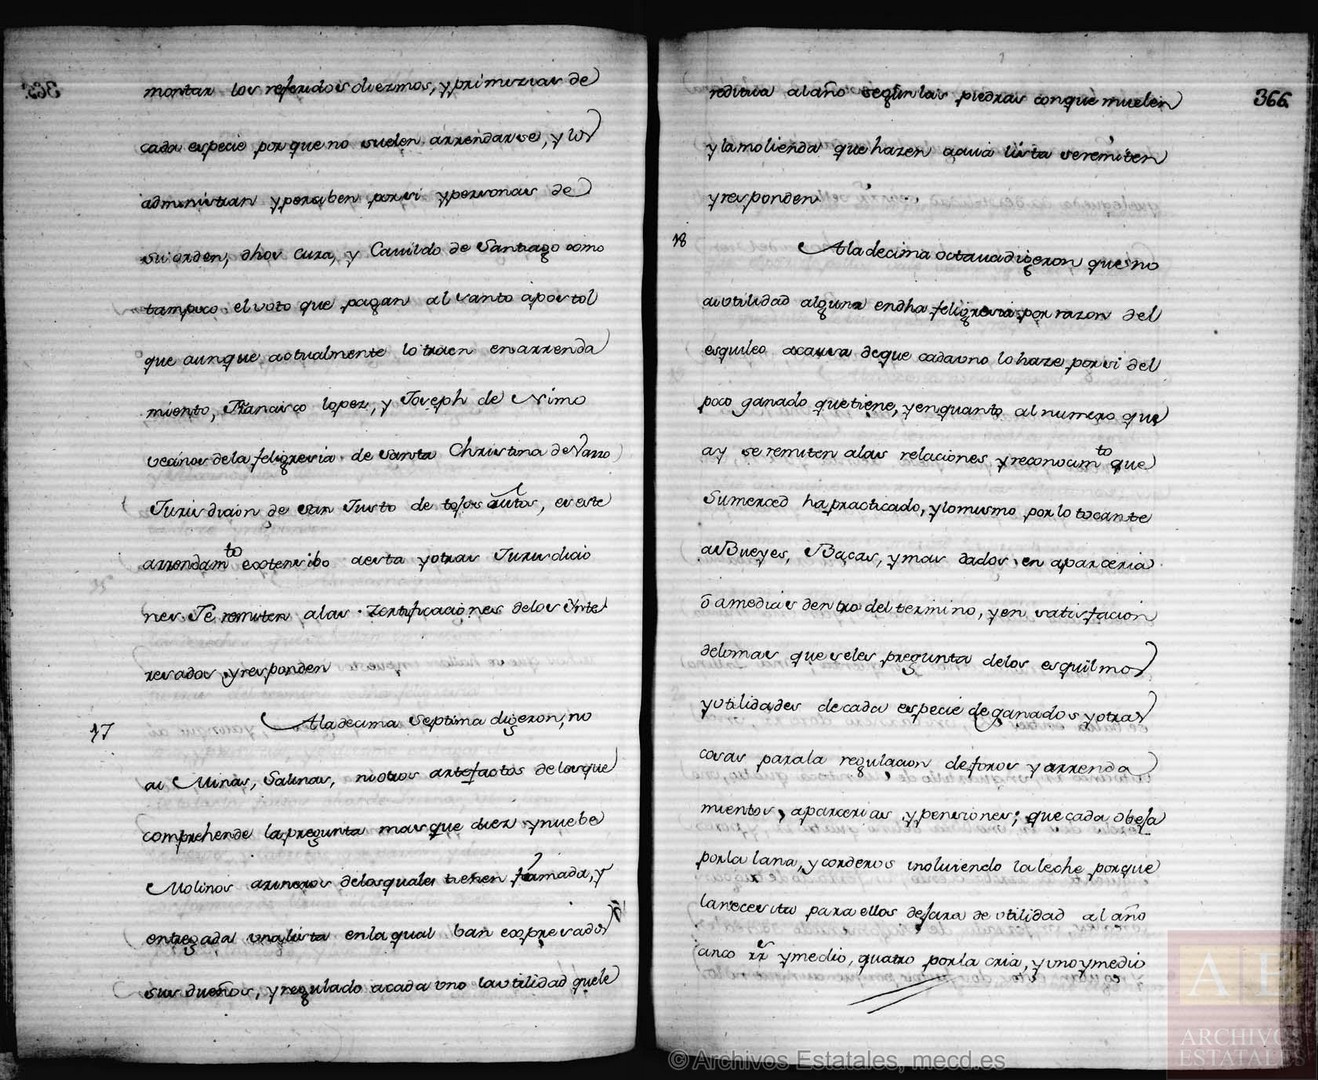 montar los referidos diezmos, y primizias de
cada especie porque no suelen arrendarse, y los
administran y perciben por si y personas de
su orden, dhos cura, y Cavildo de Santiago como
tampoco el voto que pagan al santo apostol
que aunque actualmente lo traen en arrenda
miento, Francisco lopez, y Joseph de Nimo
vecinos de la feligresia de santa Christina de Varro
Jurisdicion de san Justo de tojos autos, es este
arrendamto extensibo a esta y otras Jurisdicio
nes Se remiten a las zertificaciones de los Ynte
resados y responden
17 A la decima Septima digeron, no
ai Minas, Salinas, ni otros artefactos de los que
comprehende la pregunta mas que diez y nuebe
Molinos arineros de los quales tienen formada, y
entregada una lista en la qual ban expresados
sus dueños, y regulado a cada uno la utilidad que le
366
reditua al año segun las piedras con que muelen
y la molienda que hazen a cuia lista se remiten
y responden
18 A la decima octaua digeron que no
ai utilidad alguna en dha feligresia por razon del
esquileo a causa de que cada uno lo haze por si del
poco ganado que tiene, y en quanto al numero que
ay se remiten a las relaciones y reconocimto que
Su merced ha practicado, y lo mismo por lo tocante
a Bueyes, Bacas, y mas dados en aparceria
ô a medias dentro del termino, y en satisfacion
de lo mas que se les pregunta de los esquilmos
y utilidades de cada especie de ganados y otras
cosas para la regulacion de foros y arrenda
mientos, aparcerias y pensiones; que cada obeja
por la lana, y corderos incluiendo la leche porque
la necesita para ellos dejara de utilidad al año
cinco rrs y medio, quatro por la cria, y uno y medio
© Archivos Estatales, mecd.es
AE
ARCHIVOS
ESTATALES